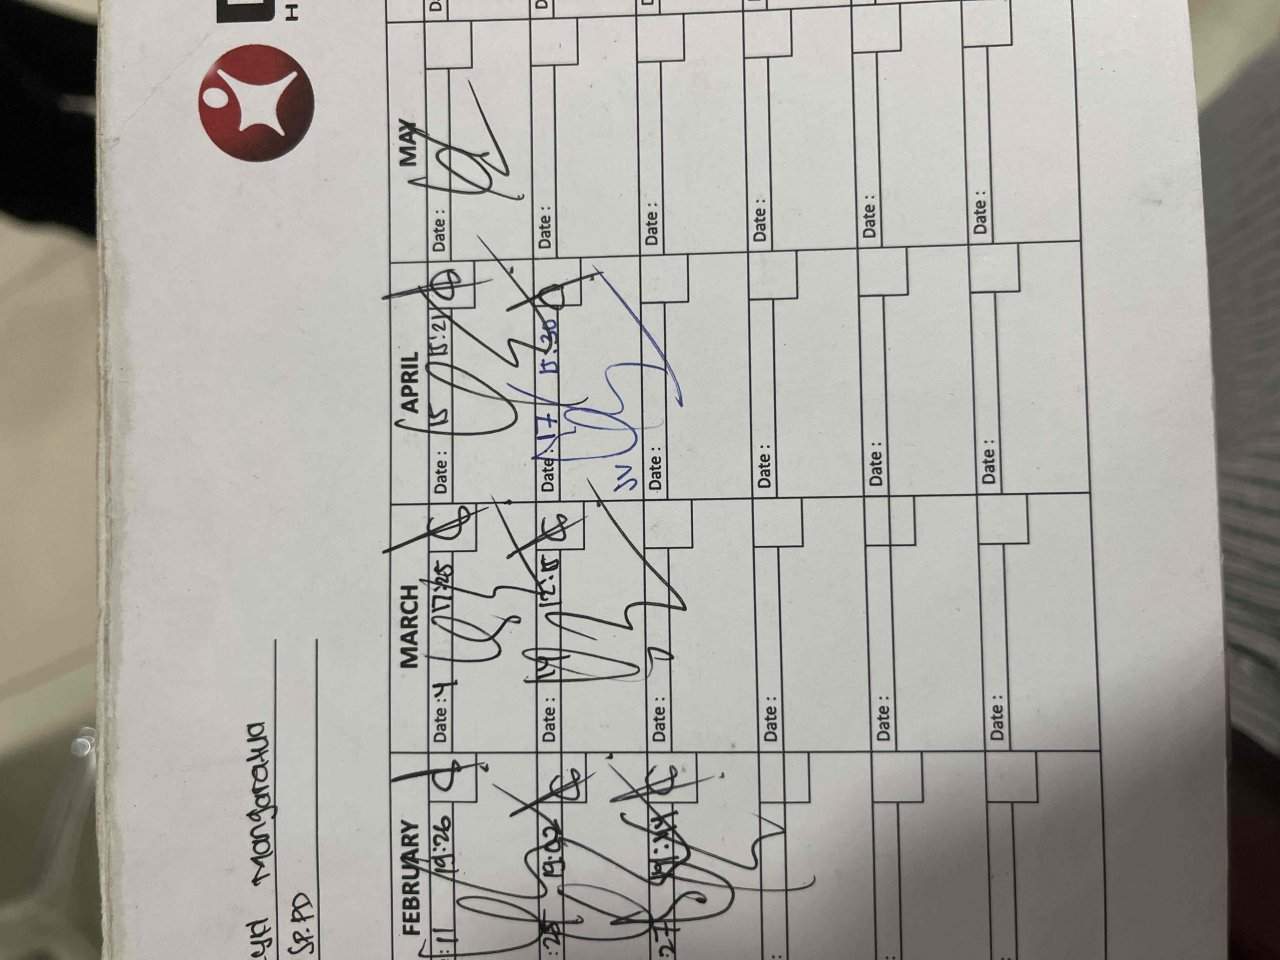 Mangaratua
SP.PD
FEBRUARY MARCH APRIL MAY
: 11 19:26
Date : 4 17:25
Date : 15 15:21
Date :
: 25 19:02
Date : 14 12:15
Date : 17 15:30
Date :
: 27
Date :
Date :
Date :
:
Date :
Date :
Date :
:
Date :
Date :
Date :
:
Date :
Date :
Date :